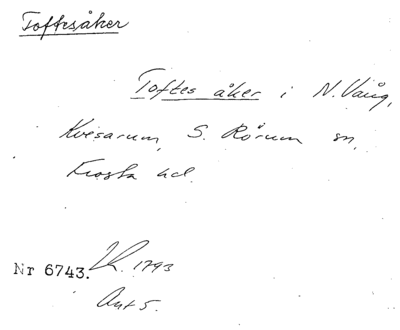 Toftesåker
Toftes åker i N. Vång,
Kvesarum, S. Rörum sn,
Frosta hd.
Nr 6743. LK. 1793
Ant 5.